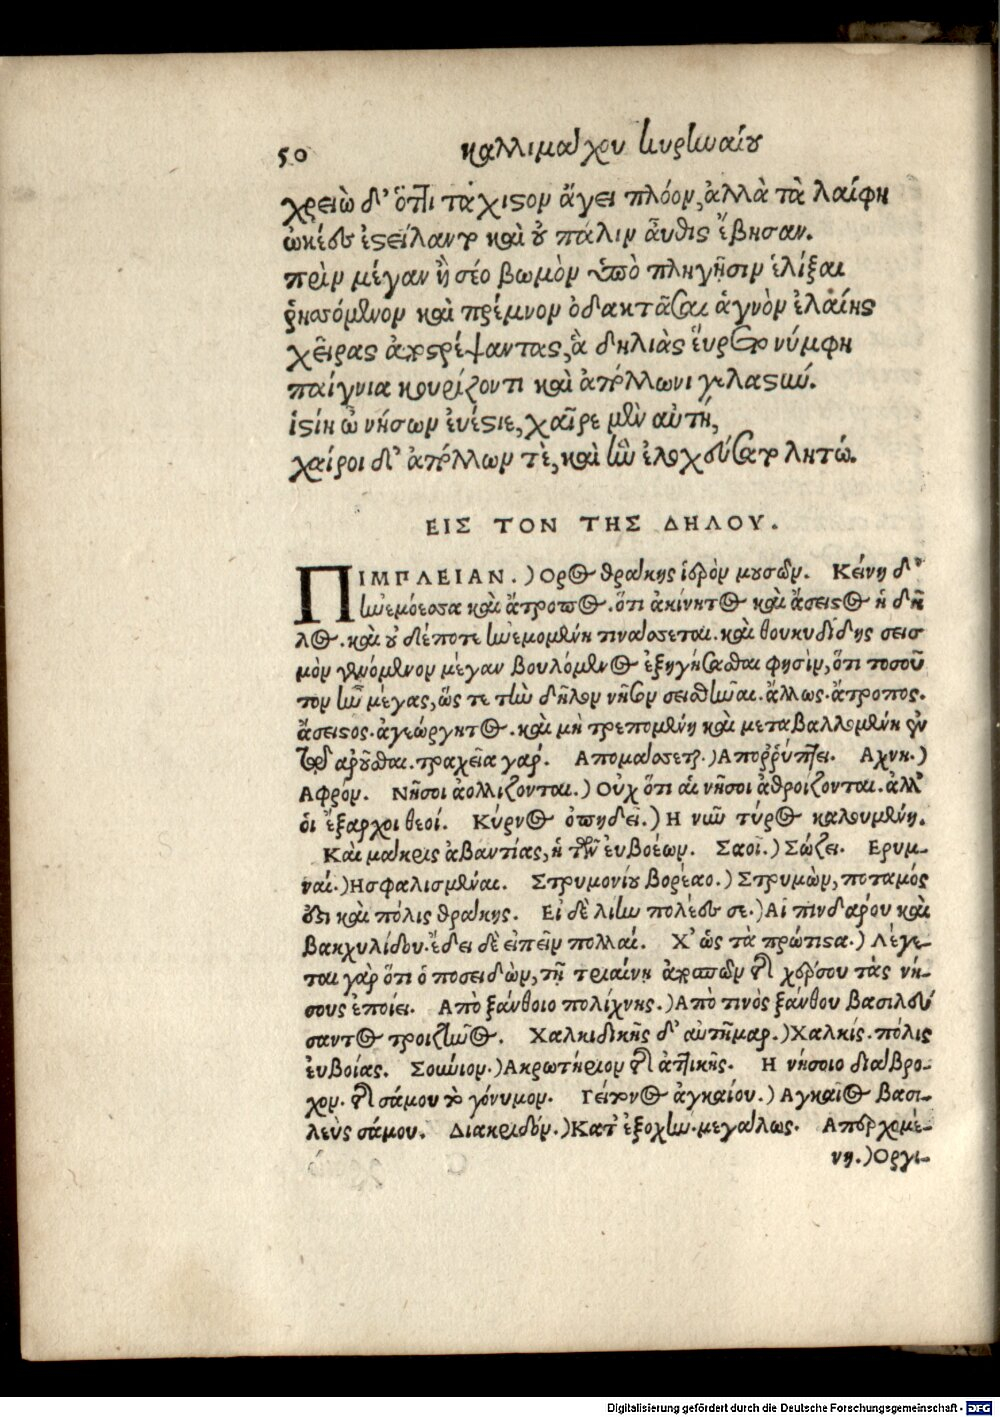 50 καλλιμάχου κυρηναίου
χρειὼ δ' ὅττι τάχιστον ἄγει πλόον, ἀλλὰ τὰ λαίφη
ὠκέες ἐστείλαντο καὶ οὐ πάλιν αὖθις ἔβησαν.
πρὶν μέγαν ἢ σέο βωμὸν ὑπὸ πληγῇσιν ἑλίξαι
ῥησσόμενον καὶ πρέμνον ὀδακτᾶσαι ἁγνὸν ἐλαίης
χεῖρας ἀποστρέψαντας, ἃ δηλιὰς εὕρετο νύμφη
παίγνια κουρίζοντι καὶ ἀπόλλωνι γελαστύν.
ἱστίη ὦ νήσων εὐέστιε, χαῖρε μὲν αὐτή,
χαίροι δ' ἀπόλλων τὲ, καὶ ἣν ἐλοχεύσατο λητώ.
ΕΙΣ ΤΟΝ ΤΗΣ ΔΗΛΟΥ.
ΠΙΜΠΛΕΙΑΝ.) Ορος θράκης ἱερὸν μουσῶν. Κείνη δ'
ἠνεμόεσσα καὶ ἄτροπος. ὅτι ἀκίνητος καὶ ἄσειστος ἡ δῆ
λος. καὶ οὐδέποτε ἠνεμομένη τινάσσεται. καὶ θουκυδίδης σεισ
μὸν γενόμενον μέγαν βουλόμενος ἐξηγήσασθαι φησὶν, ὅτι τοσοῦ
τον ἦν μέγας, ὥς τε τὴν δῆλον νῆσον σεισθῆναι. ἄλλως. ἄτροπος.
ἄσειστος. ἀγεώργητος. καὶ μὴ τρεπομένη καὶ μεταβαλλομένη ἐν
τῷ ἀροῦσθαι. τραχεῖα γάρ. Απομάσσεται.) Απορρύπτει. Αχνη.)
Αφρόν. Νῆσοι ἀολλίζονται.) Οὐχ ὅτι αἱ νῆσοι ἀθροίζονται. ἀλλ'
ὁι ἔξαρχοι θεοί. Κύρνος ὀπηδεῖ.) Η νῦν τύρος καλουμένη.
Καὶ μάκρις ἀβαντίας, ἡ τῶν εὐβοέων. Σαοῖ.) Σώζει. Ερυμ-
ναί.) Ησφαλισμέναι. Στρυμονίου βορέαο.) Στρυμὼν, ποταμός
ἐστι καὶ πόλις θράκης. Εἰ δὲ λίην πολέες σε.) Αἱ πινδάρου καὶ
βακχυλίδου. ἔδει δὲ εἰπεῖν πολλαί. Χ' ὡς τὰ πρώτιστα.) Λέγε-
ται γὰρ ὅτι ὁ ποσειδὼν, τῇ τριαίνῃ ἀποσπῶν ἀπὸ χέρσου τὰς νή-
σους ἐποίει. Απὸ ξάνθοιο πολίχνης.) Απὸ τινὸς ξάνθου βασιλεύ
σαντος τροιζῆνος. Χαλκιδικῆς δ' αὐτῆμαρ.) Χαλκίς. πόλις
ἐυβοίας. Σούνιον.) Ακρωτήριον ἀπὸ ἀττικῆς. Η νήσοιο διάβρο-
χον. ἀπὸ σάμου τὸ γόνυμον. Γείτονος ἀγκαίου.) Αγκαῖος βασι-
λεὺς σάμου. Διακριδόν.) Κατ' ἐξοχὴν. μεγάλως. Απερχομέ-
νη.) Οργι-
Digitalisierung gefördert durch die Deutsche Forschungsgemeinschaft - DFG